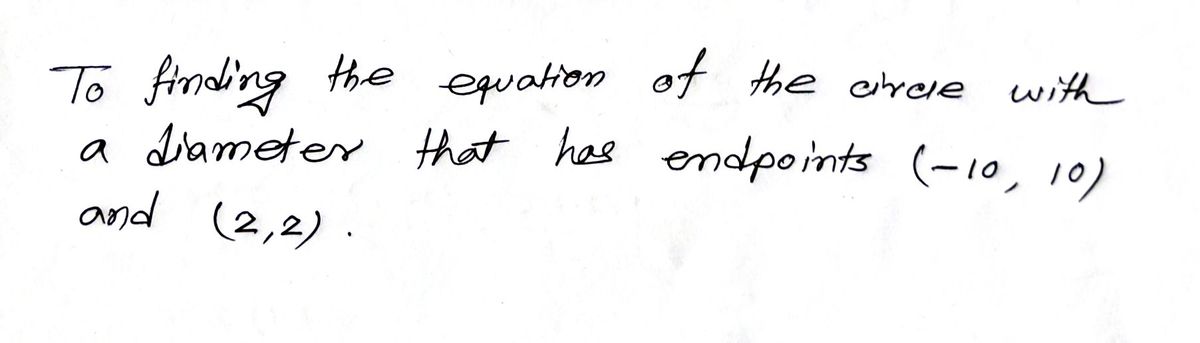 To finding the equation of the circle with
a diameter that has endpoints (-10, 10)
and (2,2).